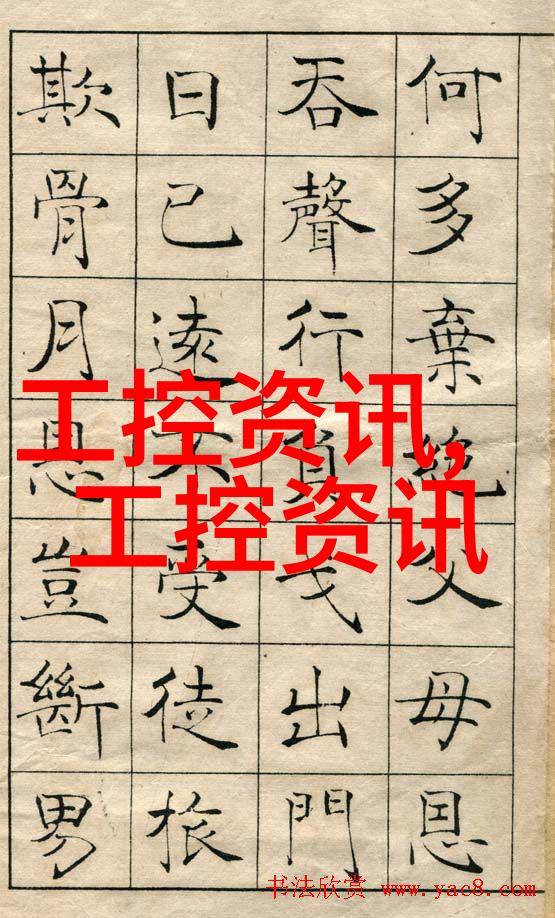 何多棄絕父母恩
吞聲行負戈出門
日已遠不受徒旅
欺骨月恩豈斷男
工控资讯,
工控资讯
书法欣赏 www.yac8.com